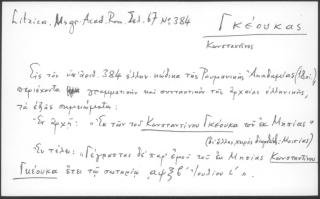 Litzica. Msgr. Acad. Rom. Σελ. 67 Nº 384
Γκέουκας
Κωνσταντῖνος
Εἰς τὸν ὑπ' ἀριθ. 384 ἑλλην. κώδικα τῆς Ρουμανικῆς Ἀκαδημίας
περιέχοντα γραμματικὴν καὶ συντακτικὸν τῆς ἀρχαίας ἑλληνικῆς,
τὰ ἑξῆς σημειώματα:
Ἐν ἀρχῇ: "Ἐκ τῶν τοῦ Κωνσταντίνου Γκέουκα τοῦ ἐκ Μησίας"
(δι' ἄλλης χειρὸς Μοισίας)
Ἐν τέλει: "Γέγραπται δὲ παρ' ἐμοῦ τοῦ ἐκ Μησίας Κωνσταντίνου
Γκέουκα ἔτει τῷ σωτηρίῳ αψξβ' Ἰουλίου ".